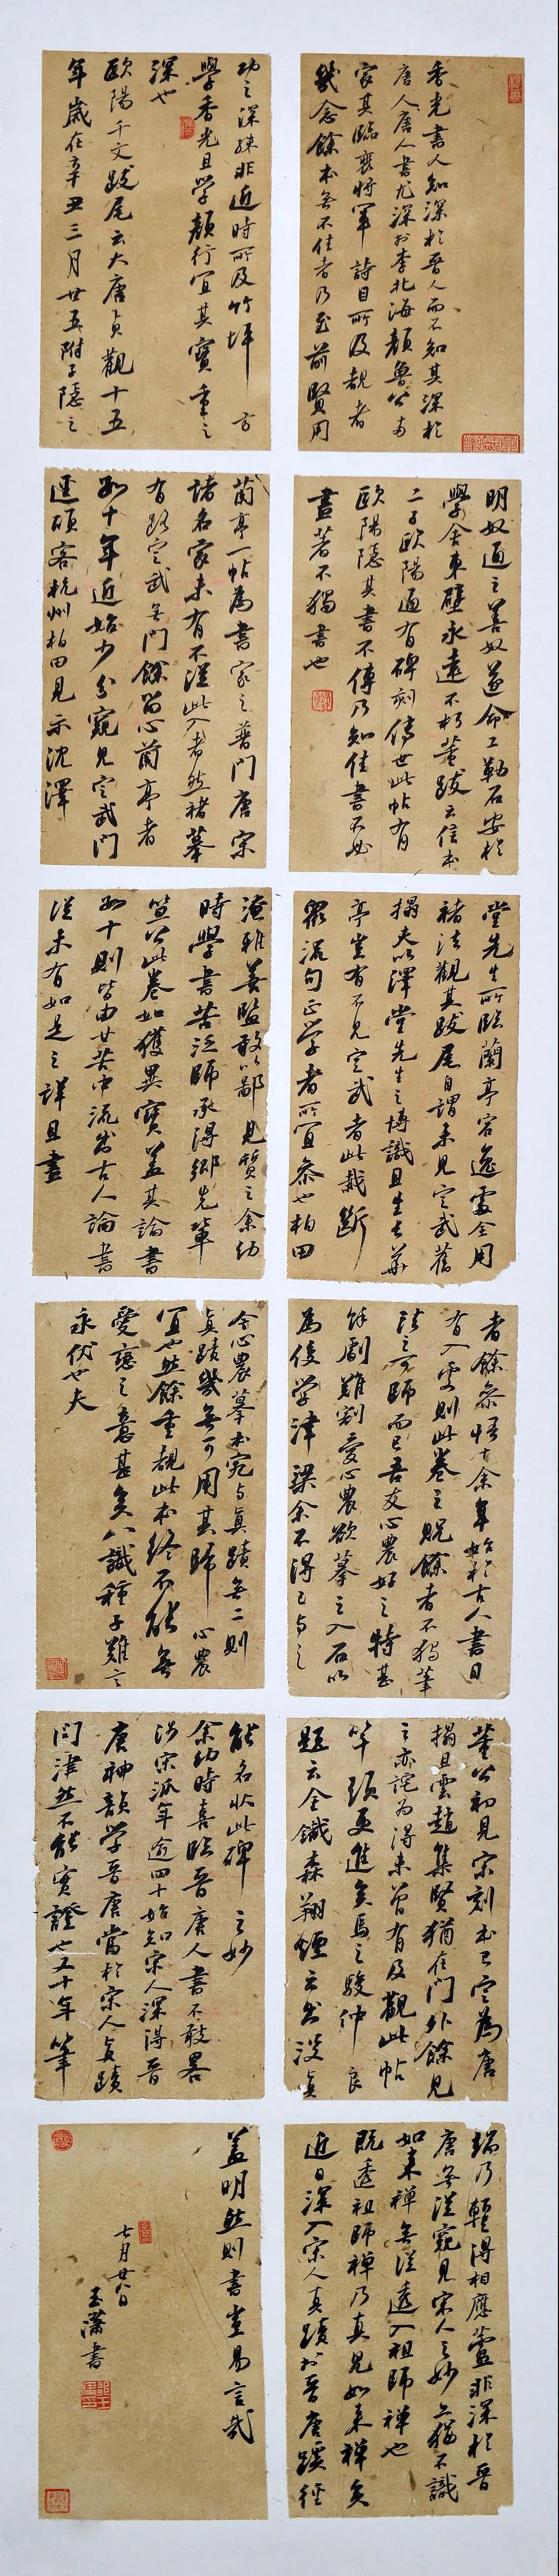 香光書人知深於晉人而不知其深於
唐人唐人書尤深於李北海顏魯公兩
家其臨裴將軍詩目所及覩者
幾念餘本無不佳者乃至前賢用
功之深殊非近時所及竹坪方
學香光且學顏行宜其寶重之
深也
歐陽千文跋尾云大唐貞觀十五
年歲在辛丑三月廿五附子隱之
明奴通之善奴遂命工勒石安於
學舍東壁永遠不朽董跋云信本
二子歐陽通有碑刻傳世此帖有
歐陽隱其書不傳乃知佳書不必
盡著不獨書也
蘭亭一帖為書家之普門唐宋
諸名家未有不從此入者然褚摹
有改定武無門餘留心蘭亭者
卅十年近始少分窺見定武門
逕頃客杭州柏田見示沈澤
堂先生所臨蘭亭容逸處全用
褚法觀其跋尾自謂未見定武舊
搨夫以澤堂先生之博識且生長華
亭豈有不見定武者此截斷
眾流句正學者所宜參也柏田
淹雅善鑒敢以鄙見質之余幼
時學書苦泛師承得鄉先輩
笪公此卷如獲異寶蓋其論書
卅十則皆由甘苦中流出古人論書
從未有如是之詳且盡
者餘參悟十余年始於古人書目
有入處則此卷之貺餘者不獨筆
法之可師而已吾友心農好之特甚
餘劇難割愛心農欲摹之入石以
為後學津梁余不得已與之
今心農摹本宛与真蹟無二則
真蹟幾無可用其歸心農
宜也然餘重覩此本終不能無
愛戀之意甚矣八識種子難言
永伏也夫
董公初見宋刻本已定為唐
搨且雲趙集賢猶在門外餘見
之亦詫為得未曾有及觀此帖
竿頭更進矣馬之駿仲良
題云金鐵森翔煙雲出沒真
能名狀此碑之妙
余幼時喜臨晉唐人書不敢畧
涉宋派年逾四十始知宋人深得晉
唐神韻學晉唐當於宋人真蹟
問津然不能實證也又十年筆
端乃輕得相應蓋非深於晉
唐無從窺見宋人之妙亦猶不識
如來禪無從透入祖師禪也
既透祖師禪乃真見如來禪矣
近日深入宋人真蹟於晉唐蹊徑
益明然則書豈易言哉
七月廿八日
玉瀟書